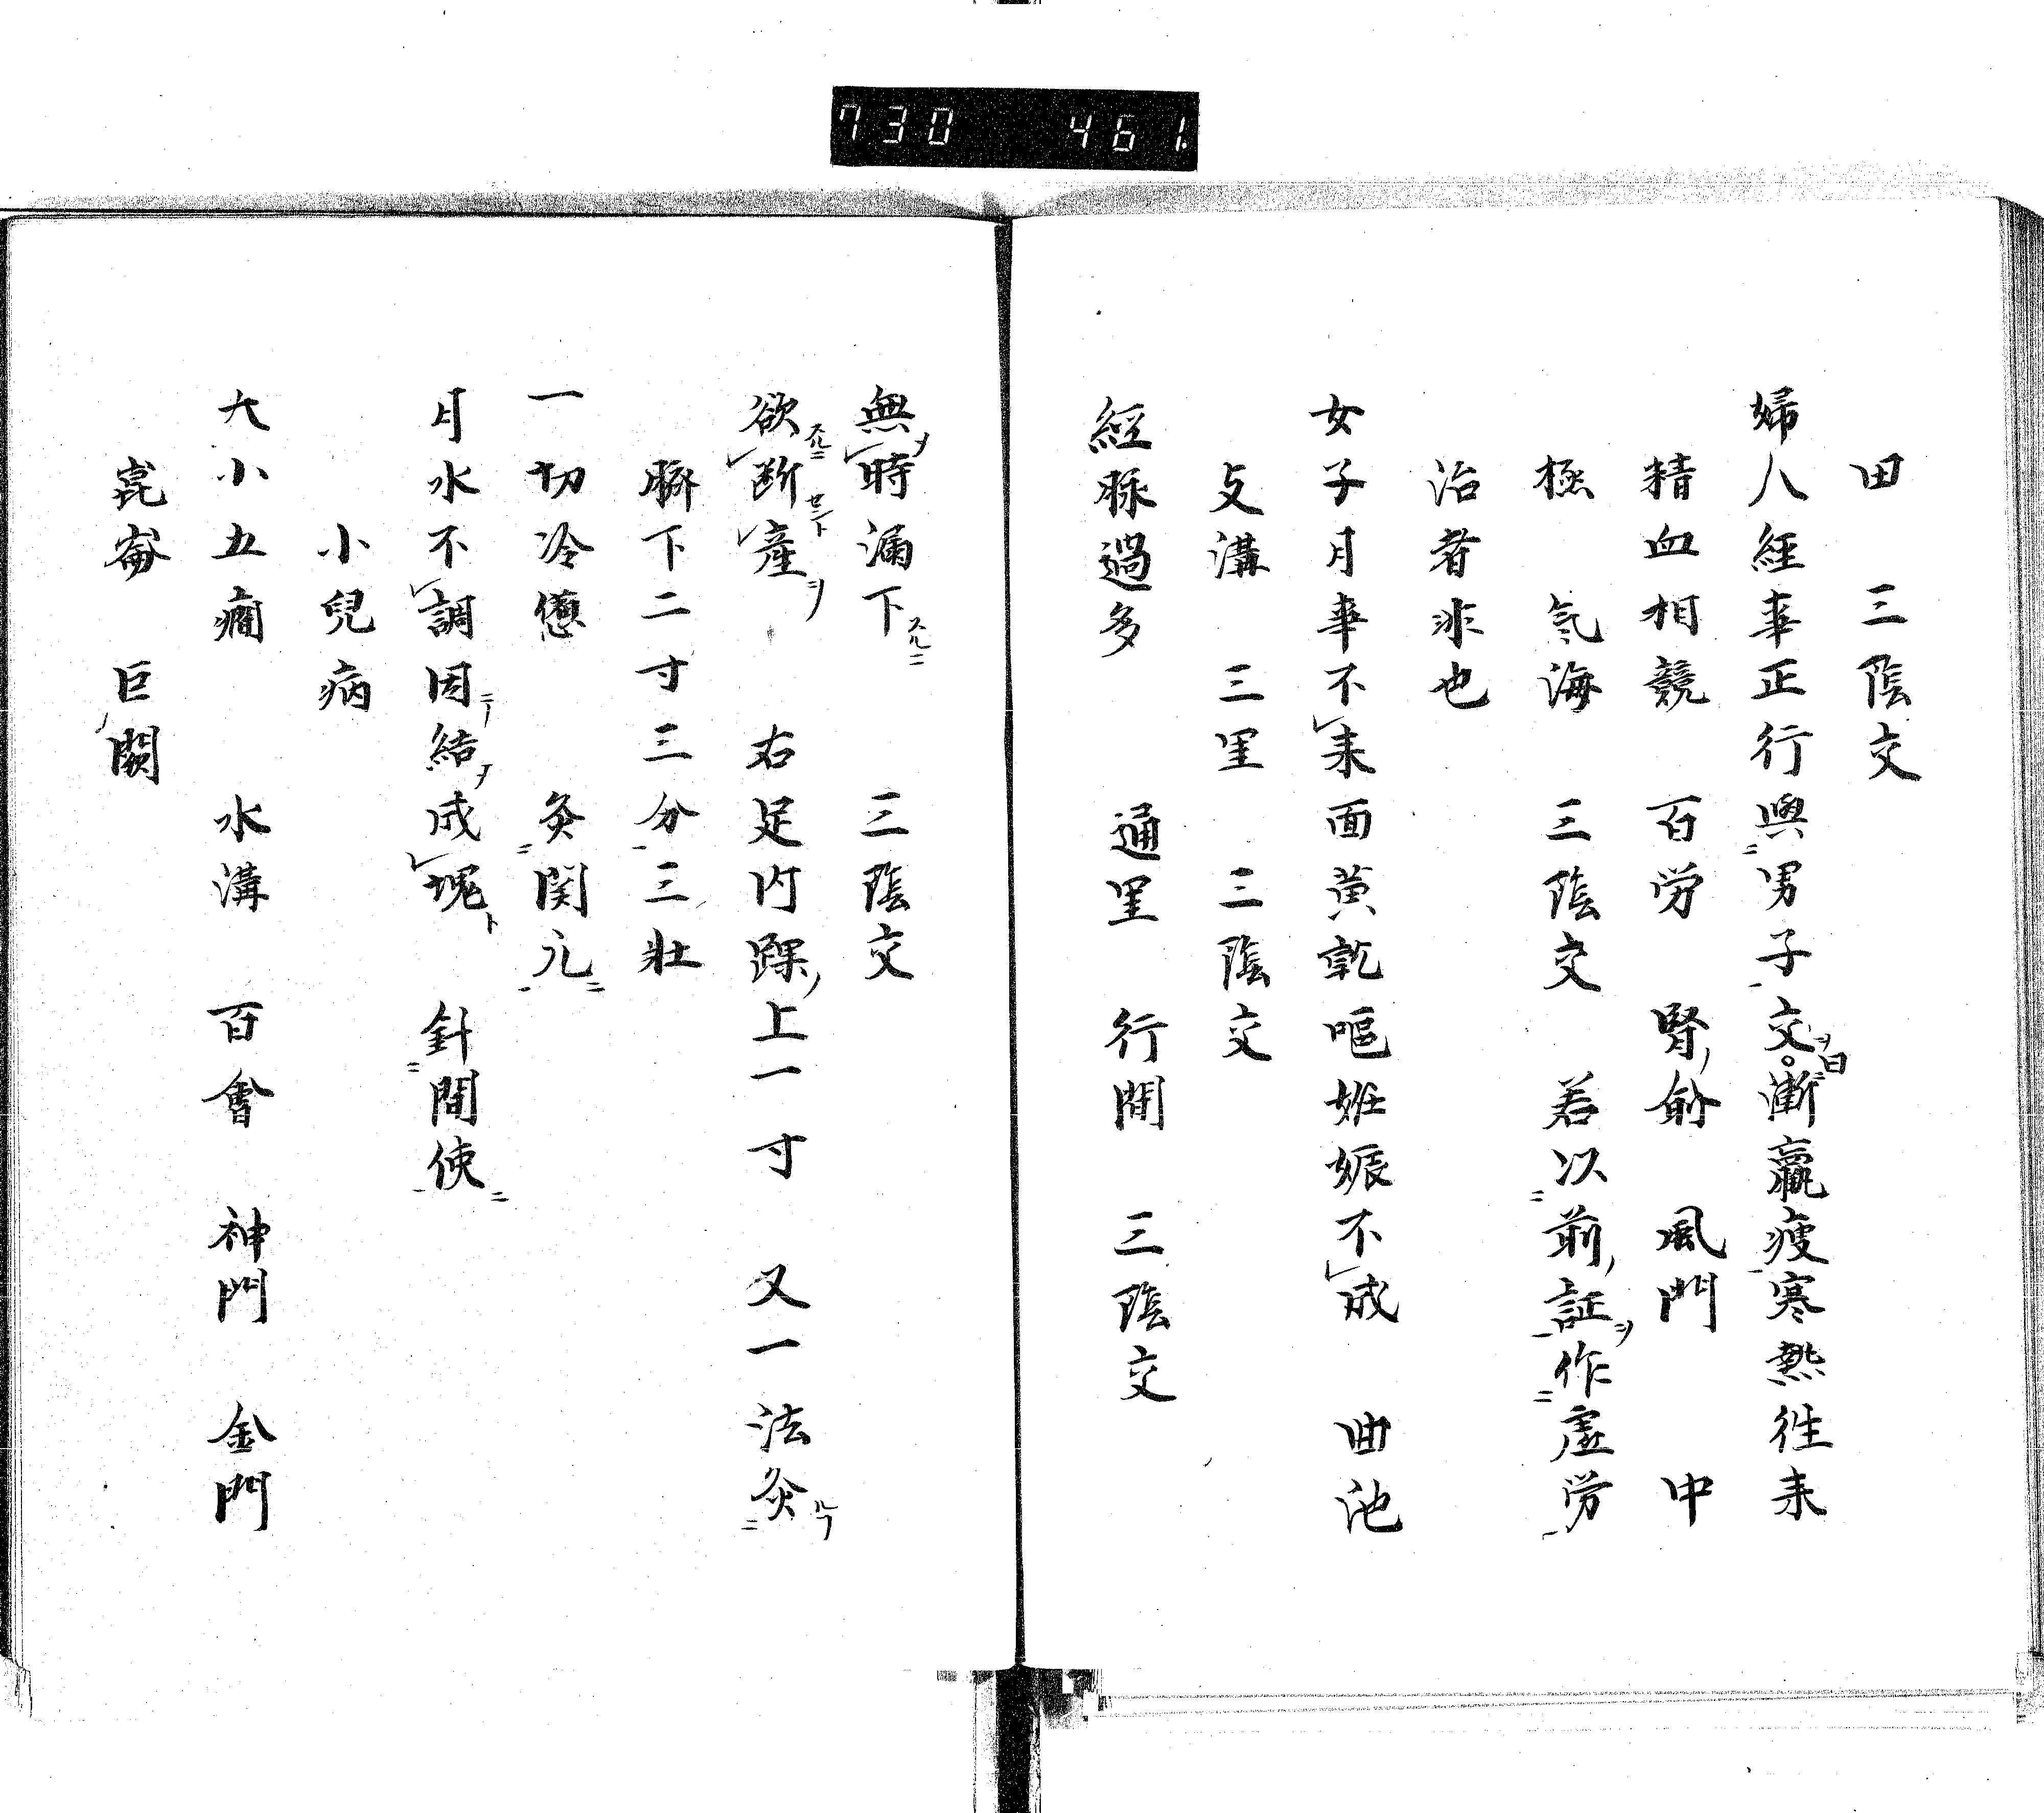 730 461.
田　三陰交
婦人經事正行與男子交日漸羸瘦寒熱徃来
精血相競　百労　腎俞　風門　中
極　気海　三陰交　若以前証作虚労
治者非也
女子月事不来面黄乾嘔妊娠不成　曲池
支溝　三里　三陰交
經脉過多　通里　行間　三陰交
無時漏下　三陰交
欲断産　右足内踝上一寸　又一法灸
臍下二寸三分三壮
一切冷憊　灸関元
月水不調因結成塊　針間使
小兒病
大小五癇　水溝　百會　神門　金門
崑崙　巨闕